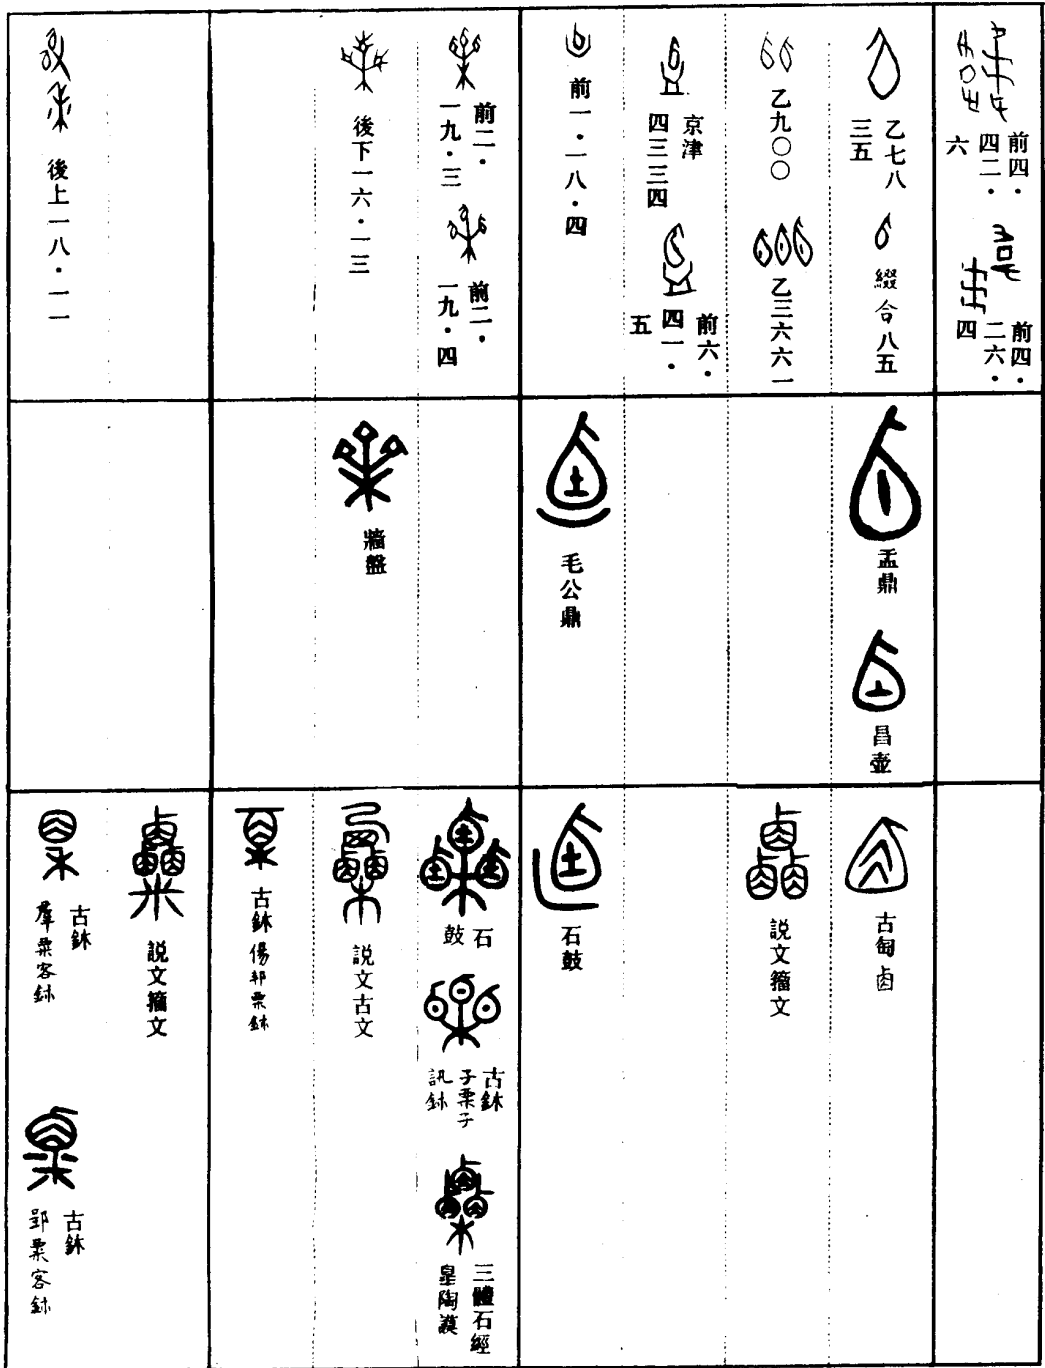 前四・
四二・
六
前四・
二六・
四
乙七八
三五
綴合八五
乙九〇〇
乙三六六一
京津
四三三四
前六・
四一・
五
前一・一八・四
前二・
一九・三
前二・
一九・四
後下一六・一三
後上一八・一一
盂鼎
昌壺
毛公鼎
牆盤
古匋卣
説文籀文
石鼓
石
鼓
古鉢
子栗子
訊鉢
三體石經
皐陶謨
説文古文
古鉢
昜邦栗鉢
説文籀文
古鉢
粟客鉢
古鉢
粟客鉢